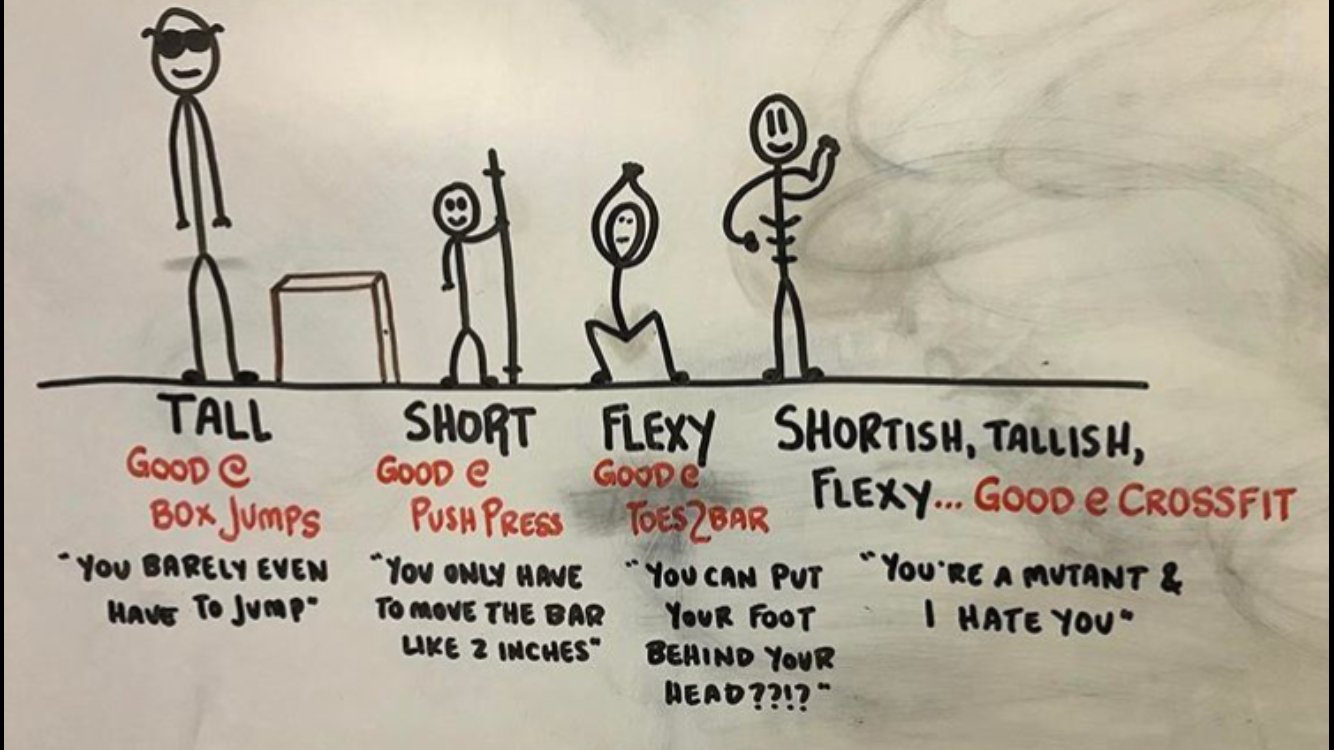 TALL
GOOD @
BOX JUMPS
"YOU BARELY EVEN
HAVE TO JUMP"
SHORT
GOOD @
PUSH PRESS
"YOU ONLY HAVE
TO MOVE THE BAR
LIKE 2 INCHES"
FLEXY
GOOD @
TOES2BAR
"YOU CAN PUT
YOUR FOOT
BEHIND YOUR
HEAD??!?"
SHORTISH, TALLISH,
FLEXY... GOOD @ CROSSFIT
"YOU'RE A MUTANT &
I HATE YOU"